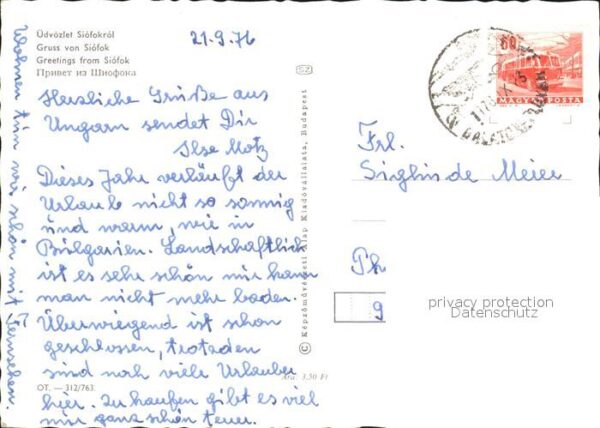 Üdvözlet Siófokról
Gruss von Siófok
Greetings from Siófok
Привет из Шиофока
21.9.76
Herzliche Grüße aus
Ungarn sendet Dir
Ilse Motz
Dieses Jahr verläuft der
Urlaub nicht so sonnig
und warm, wie in
Bulgarien. Landschaftlich
ist es sehr schön nur kann
man nicht mehr baden.
Überwiegend ist schon
geschlossen, trotzdem
sind noch viele Urlauber
hier. Zu kaufen gibt es viel
nur ganz schön teuer.
Wohnen tun wir schön mit Fernsehen.
OT. — 312/763
Ára: 3,50 Ft
© Képzőművészeti Alap Kiadóvállalata, Budapest
MAGYAR POSTA
Frl.
Meier
Ph
9
privacy protection
Datenschutz